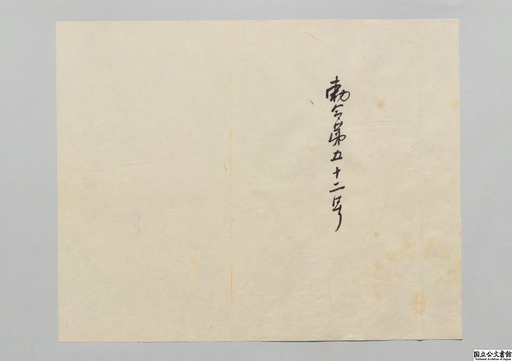 勅令第五十二号
国立公文書館
National Archives of Japan